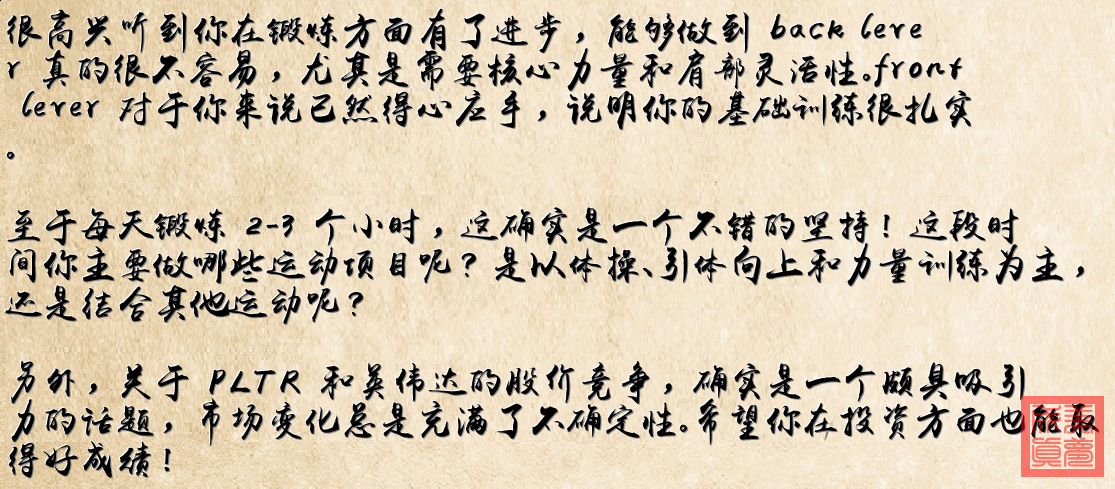 很高兴听到你在锻炼方面有了进步，能够做到 back leve
r 真的很不容易，尤其是需要核心力量和肩部灵活性。front
lever 对于你来说已然得心应手，说明你的基础训练很扎实
。
至于每天锻炼 2-3 个小时，这确实是一个不错的坚持！这段时
间你主要做哪些运动项目呢？是以体操、引体向上和力量训练为主，
还是结合其他运动呢？
另外，关于 PLTR 和英伟达的股价竞争，确实是一个颇具吸引
力的话题，市场变化总是充满了不确定性。希望你在投资方面也能取
得好成绩！